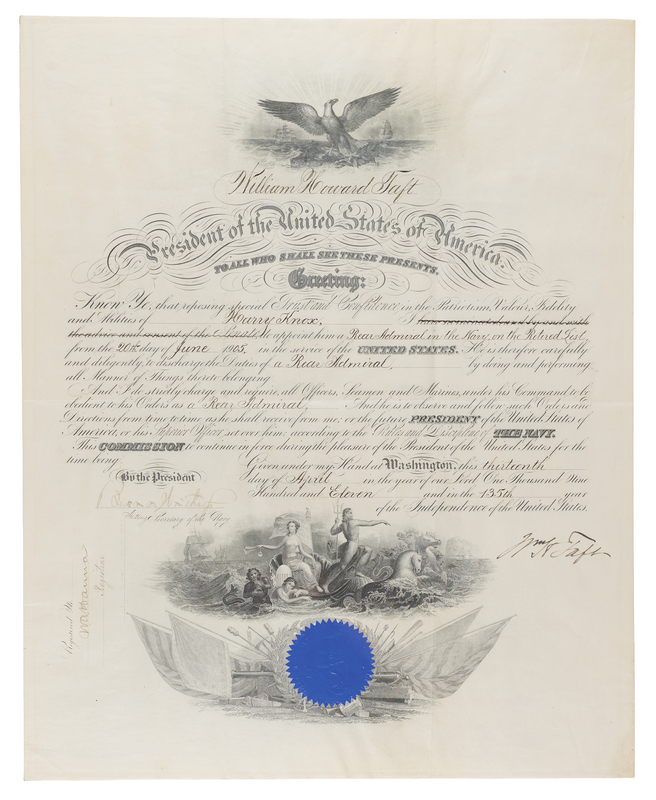 William Howard Taft
President of the United States of America.
TO ALL WHO SHALL SEE THESE PRESENTS,
Greeting:
Know Ye, that reposing special Trust and Confidence in the Patriotism, Valour, Fidelity
and Abilities of Harry Knox, I have nominated and by and with
the advice and consent of the Senate do appoint him a Rear Admiral in the Navy, on the Retired List,
from the 20th day of June 1905, in the service of the UNITED STATES. He is therefore carefully
and diligently to discharge the Duties of a Rear Admiral, by doing and performing
all Manner of Things thereto belonging.
And I do strictly charge and require all Officers, Seamen and Marines, under his Command to be
obedient to his Orders as a Rear Admiral, And he is to observe and follow such Orders and
Directions from time to time as he shall receive from me, or the future PRESIDENT of the United States of
America, or his Superior Officer set over him, according to the Rules and Discipline of THE NAVY.
This COMMISSION to continue in force during the pleasure of the President of the United States for the
time being.
Given under my Hand at Washington, this thirteenth
By the President
day of April in the year of our Lord One Thousand Nine
Hundred and Eleven and in the 135th year
Acting Secretary of the Navy
of the Independence of the United States.
Wm H Taft
Registered No
Register